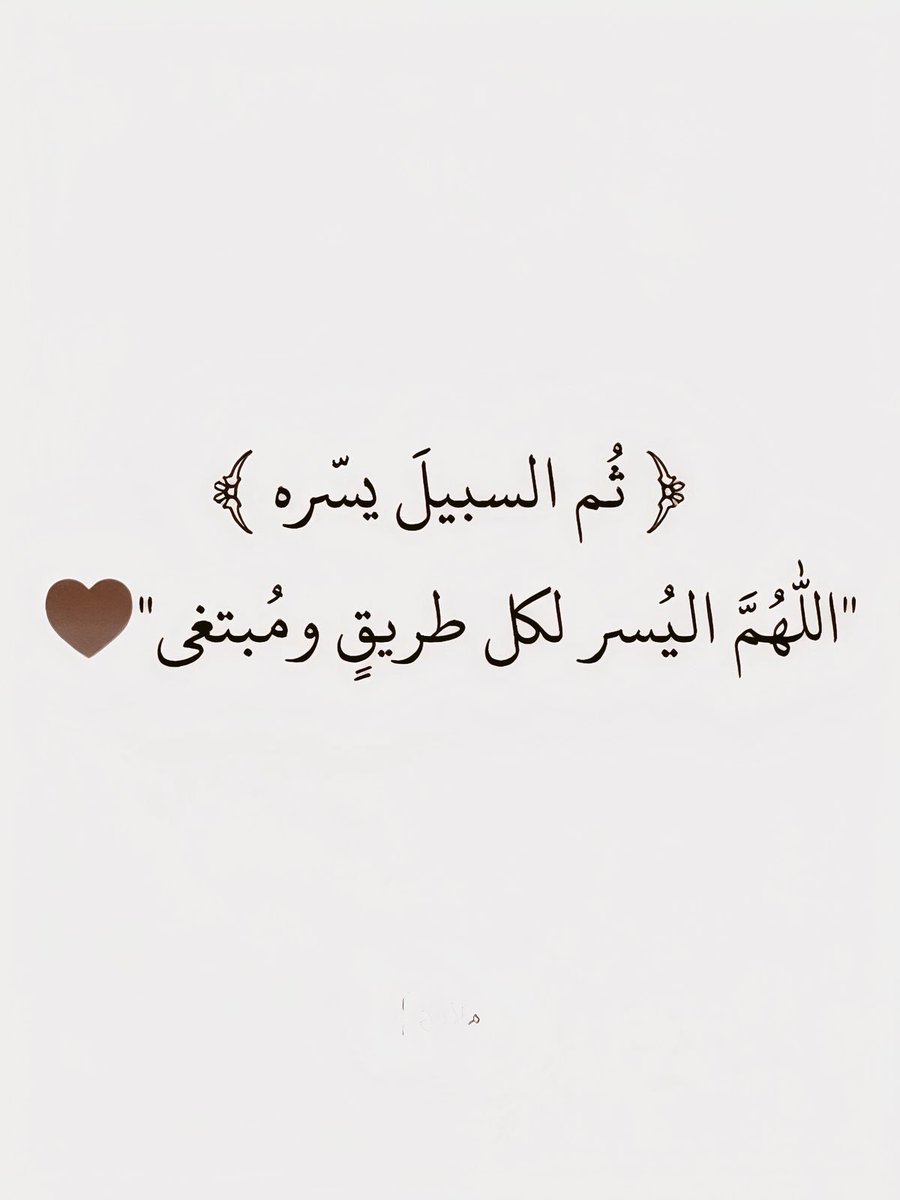 ﴿ ثُم السبيلَ يسّره ﴾
"اللّٰهُمَّ اليُسر لكل طريقٍ ومُبتغى"🤎